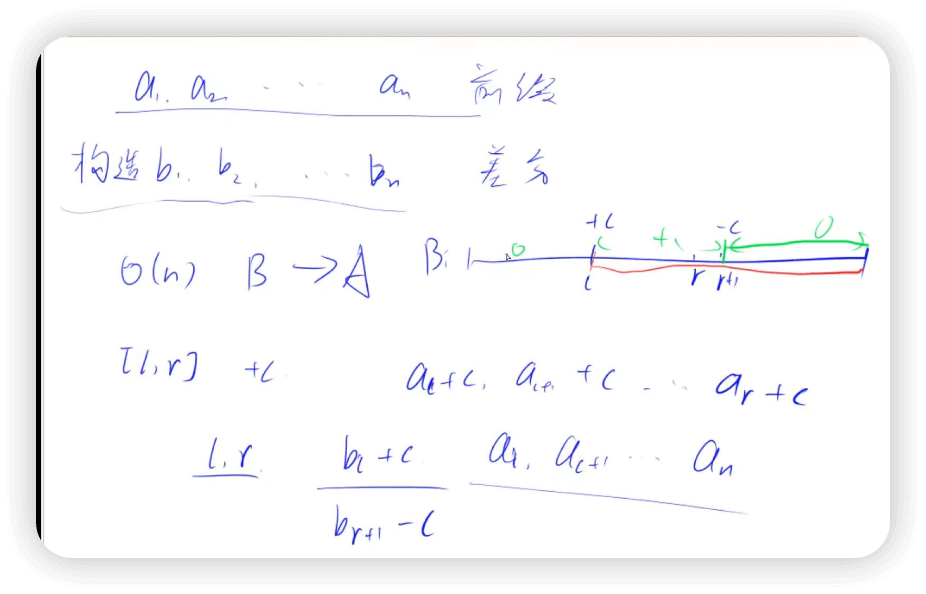 a₁, a₂ ⋯ ⋯ aₙ 前缀
构造 b₁, b₂, ⋯ bₙ 差分
O(n) B → A B: 0 +c +c -c 0
l r r+1
[l, r] +c a_l+c, a_{l+1}+c ⋯ a_r+c
l, r b_l+c a_l, a_{l+1} ⋯ aₙ
b_{r+1}-c